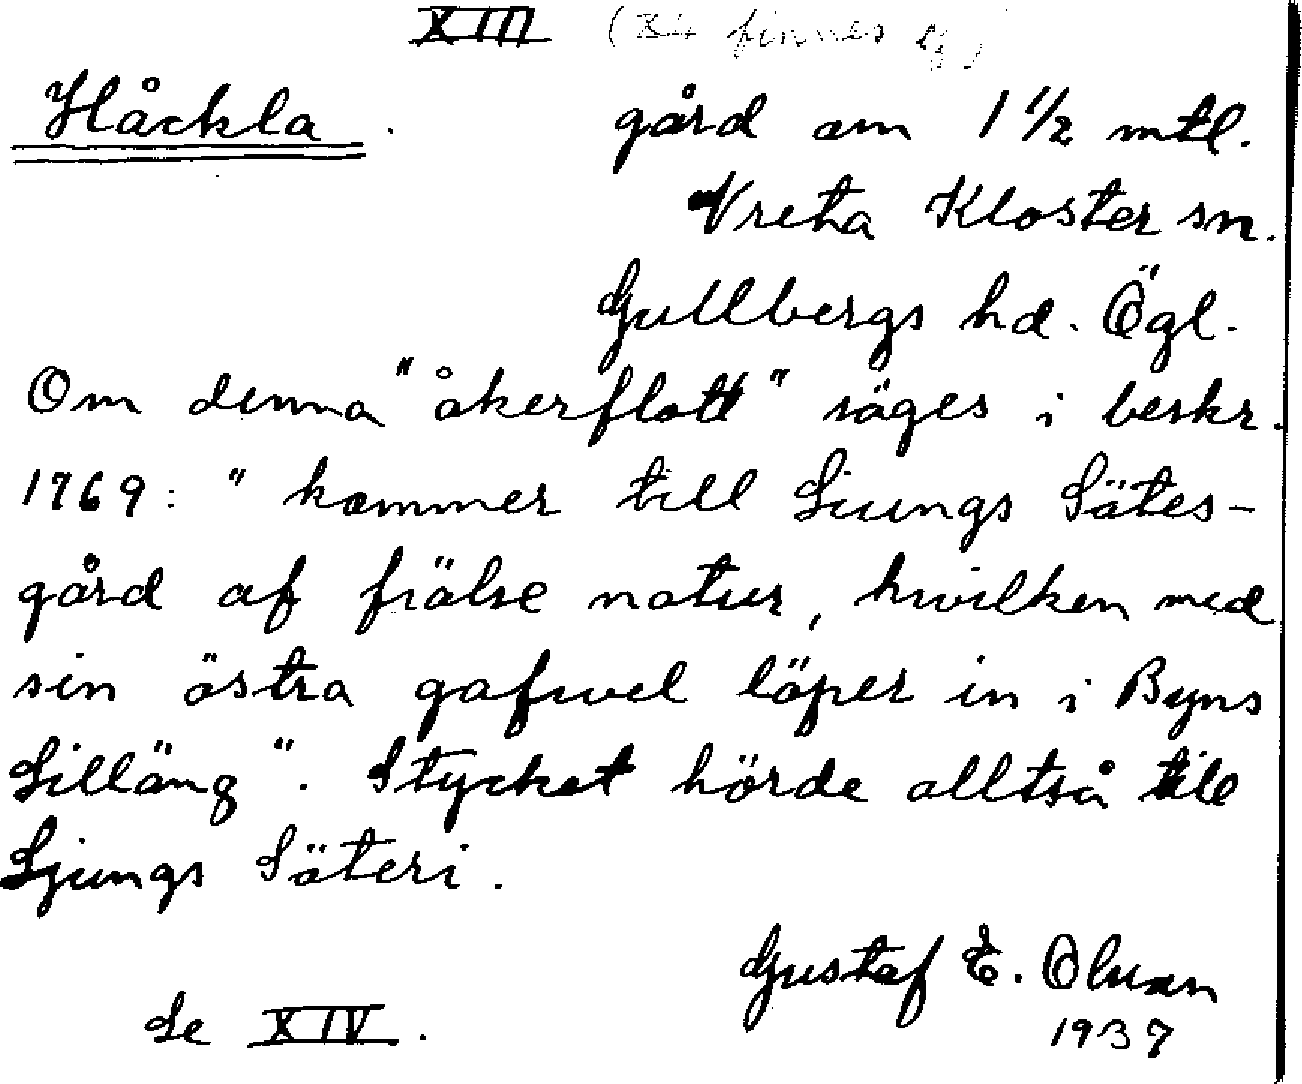 XIII (X4 finnes ej)
Håckla. gård om 1 1/2 mtl.
Vreta Kloster sn.
Gullbergs hd. Ögl.
Om denna "åkerflott" säges i beskr.
1769: "kommer till Liungs Sätes-
gård af friälse natur, hvilken med
sin östra gafwel löper in i Byns
Lilläng". Stycket hörde alltså till
Ljungs Säteri.
Gustaf E. Olsson
1937
Se XIV.